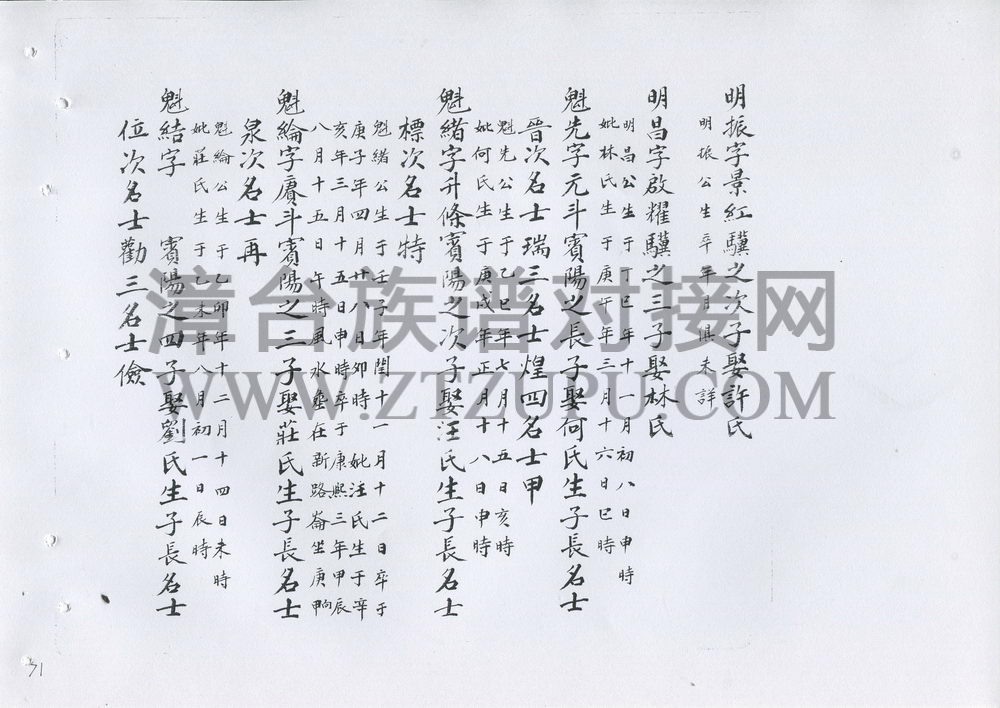 明振字景紅驥之次子娶許氏
明振公生卒年月俱未詳
明昌字啟耀驥之三子娶林氏
明昌公生于丁巳年十一月初八日申時
妣林氏生于庚午年三月十六日巳時
魁先字元斗賓陽之長子娶何氏生子長名士
晉次名士瑞三名士煌四名士甲
魁先公生于乙巳年七月十五日亥時
妣何氏生于庚戌年正月十八日申時
魁緒字升條賓陽之次子娶汪氏生子長名士
標次名士特
魁緒公生于壬子年閏十一月十二日卒于
庚子年四月廿八日卯時妣汪氏生于辛
亥年三月十五日申時卒于康熙三年甲辰
八月十五日午時風水塋在新路崙坐庚向甲
魁綸字賡斗賓陽之三子娶莊氏生子長名士
泉次名士再
魁綸公生于乙卯年十二月十四日未時
妣莊氏生于乙未年八月初一日辰時
魁結字 賓陽之四子娶劉氏生子長名士
位次名士勸三名士儉
31
漳台族谱对接网
WWW.ZTZUPU.COM